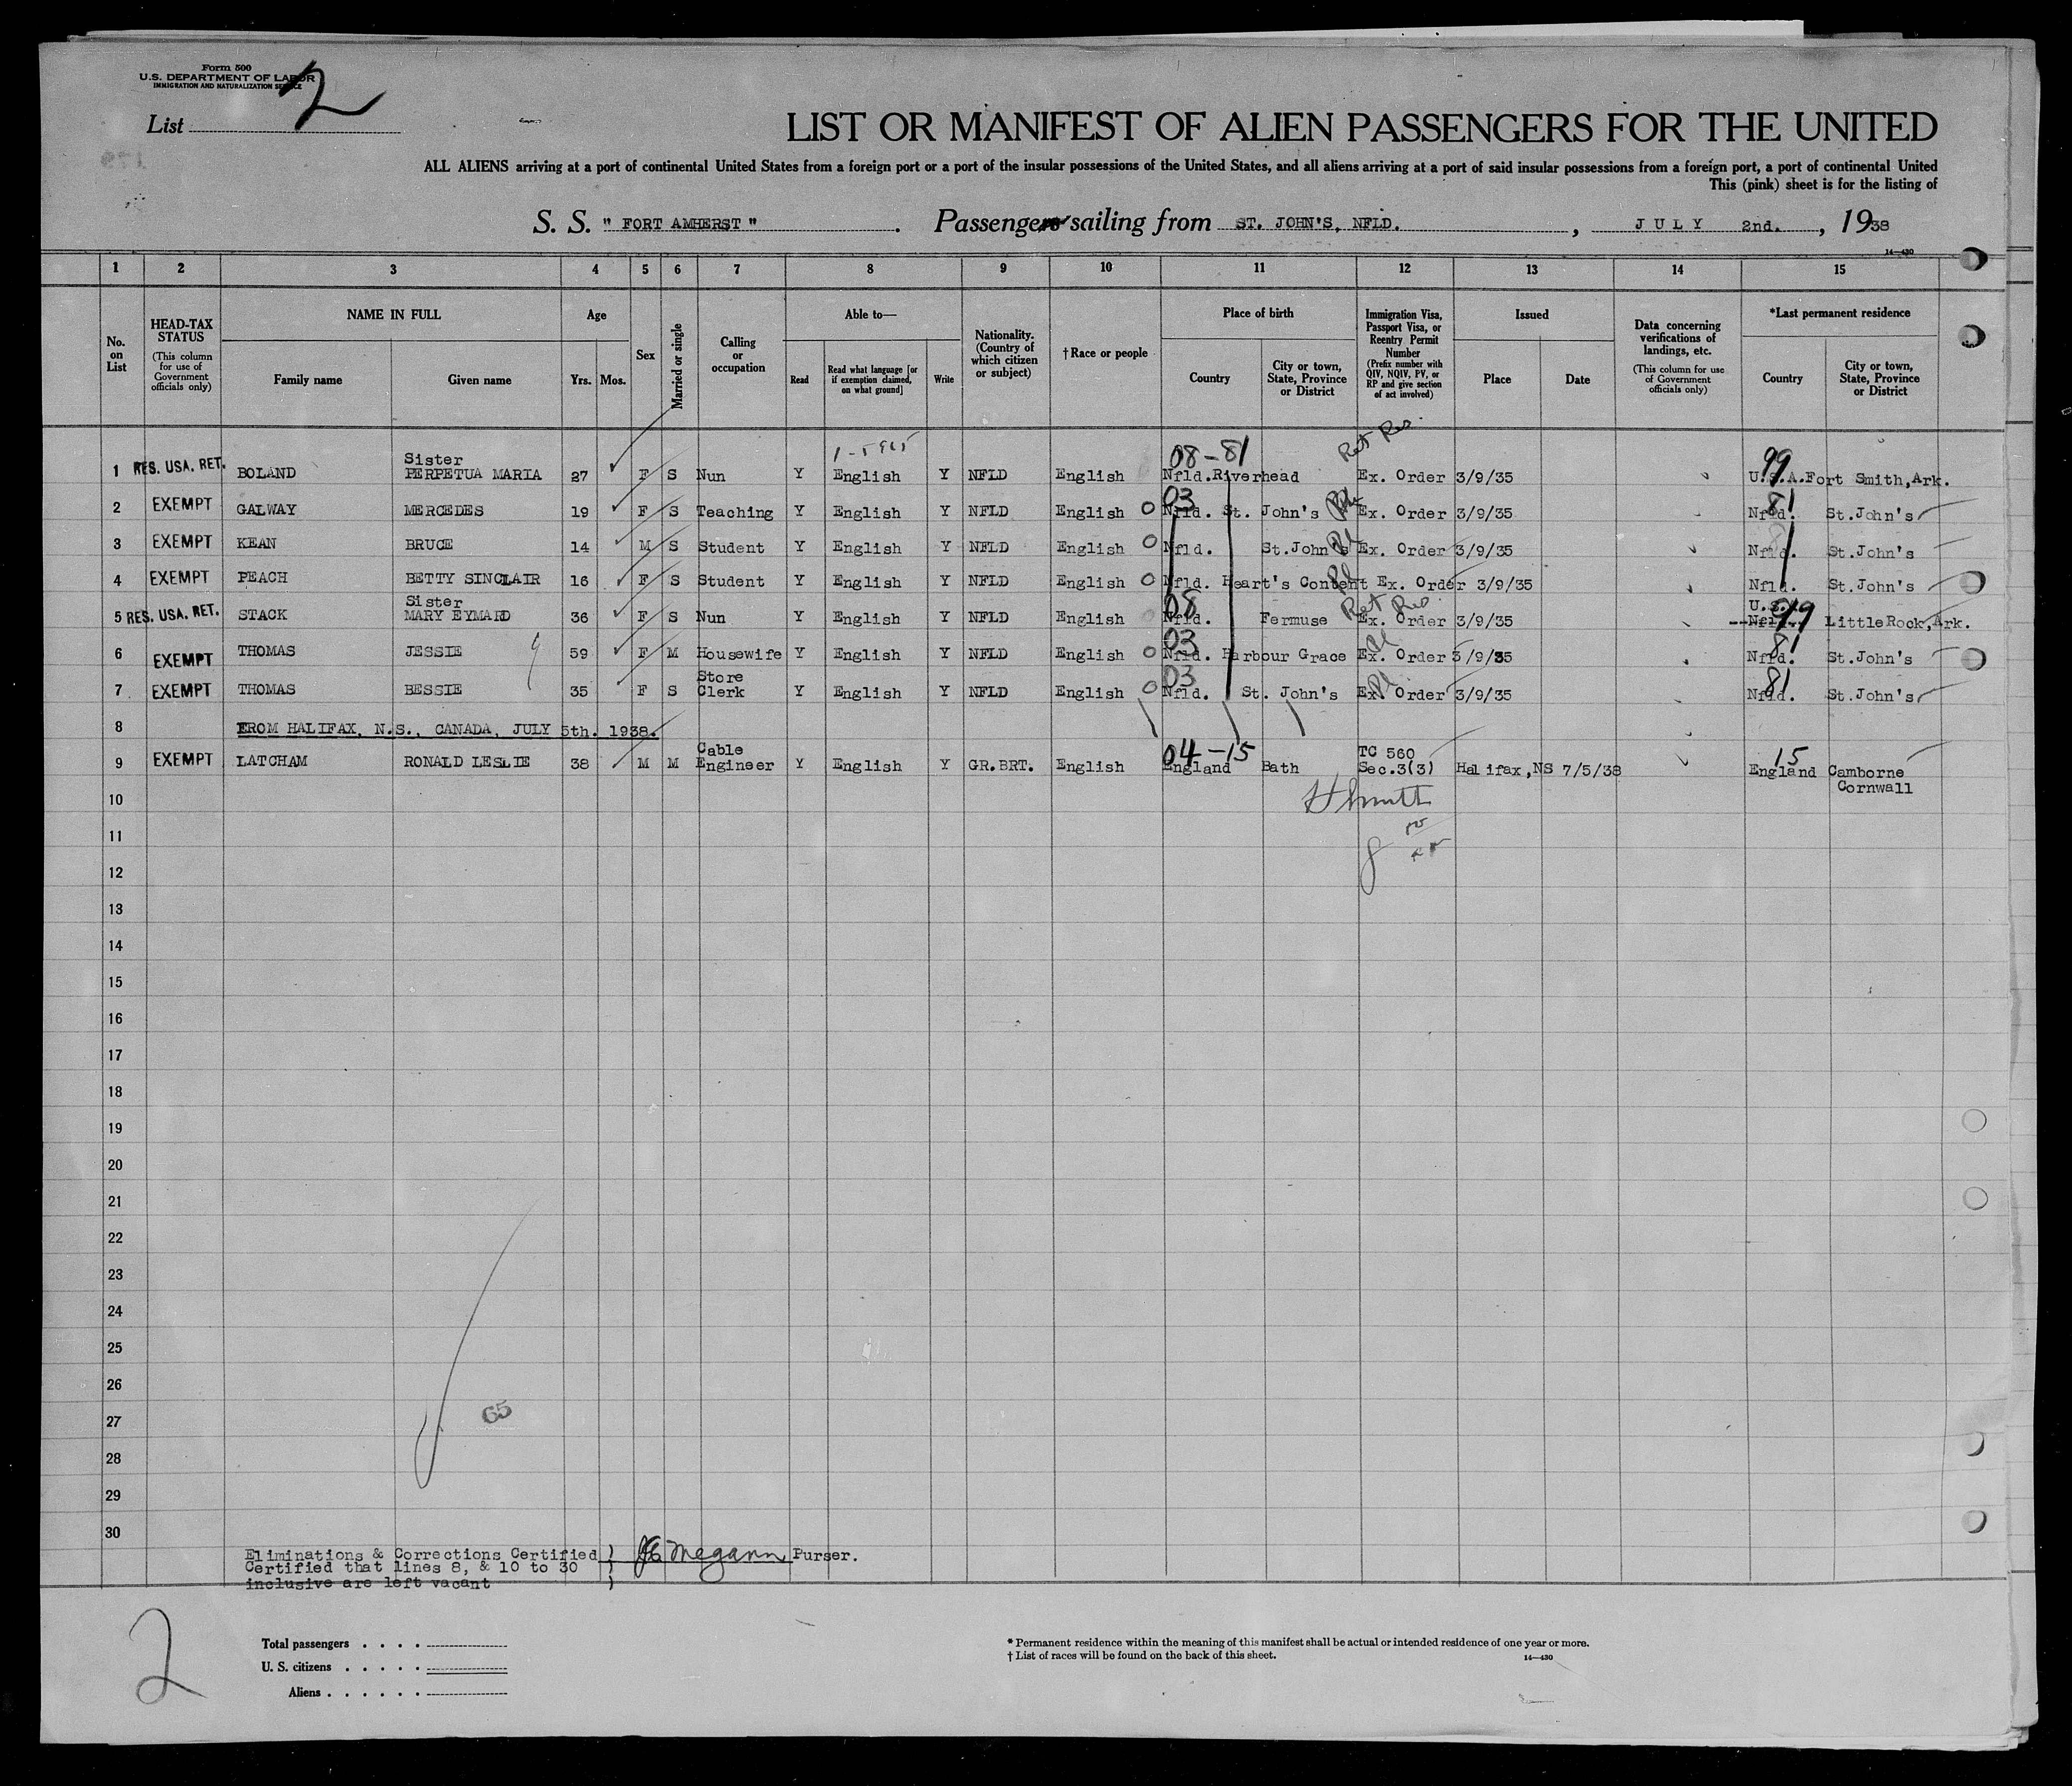 Form 500
U.S. DEPARTMENT OF LABOR
IMMIGRATION AND NATURALIZATION SERVICE
List 2
LIST OR MANIFEST OF ALIEN PASSENGERS FOR THE UNITED
ALL ALIENS arriving at a port of continental United States from a foreign port or a port of the insular possessions of the United States, and all aliens arriving at a port of said insular possessions from a foreign port, a port of continental United
This (pink) sheet is for the listing of
S. S. " FORT AMHERST " . Passengers sailing from ST. JOHN'S, NFLD. , JULY 2nd. , 1938
14—430
1 2 3 4 5 6 7 8 9 10 11 12 13 14 15
No. on List
HEAD-TAX STATUS (This column for use of Government officials only)
NAME IN FULL
Family name
Given name
Age
Yrs. Mos.
Sex
Married or single
Calling or occupation
Able to—
Read
Read what language [or if exemption claimed, on what ground]
Write
Nationality. (Country of which citizen or subject)
† Race or people
Place of birth
Country
City or town, State, Province or District
Immigration Visa, Passport Visa, or Reentry Permit Number (Prefix number with QIV, NQIV, PV, or RP and give section of act involved)
Issued
Place
Date
Data concerning verifications of landings, etc. (This column for use of Government officials only)
*Last permanent residence
Country
City or town, State, Province or District
08-81 Ret Res. 99
1 RES. USA. RET. BOLAND Sister PERPETUA MARIA 27 F S Nun Y English Y NFLD English Nfld. Riverhead Ex. Order 3/9/35 U.S.A. Fort Smith, Ark.
03 81
2 EXEMPT GALWAY MERCEDES 19 F S Teaching Y English Y NFLD English O Nfld. St. John's Ex. Order 3/9/35 Nfld. St.John's
3 EXEMPT KEAN BRUCE 14 M S Student Y English Y NFLD English O Nfld. St.John's Ex. Order 3/9/35 Nfld. St.John's
4 EXEMPT PEACH BETTY SINCLAIR 16 F S Student Y English Y NFLD English O Nfld. Heart's Content Ex. Order 3/9/35 Nfld. St.John's
08 Ret Res. 99
5 RES. USA. RET. STACK Sister MARY EYMARD 36 F S Nun Y English Y NFLD English Nfld. Fermuse Ex. Order 3/9/35 U.S. Nfld. LittleRock, Ark.
03 81
6 EXEMPT THOMAS JESSIE 59 F M Housewife Y English Y NFLD English O Nfld. Harbour Grace Ex. Order 3/9/35 Nfld. St.John's
03 81
7 EXEMPT THOMAS BESSIE 35 F S Store Clerk Y English Y NFLD English O Nfld. St. John's Ex. Order 3/9/35 Nfld. St.John's
8 FROM HALIFAX, N.S., CANADA, JULY 5th. 1938.
04-15 15
9 EXEMPT LATCHAM RONALD LESLIE 38 M M Cable Engineer Y English Y GR.BRT. English England Bath TC 560 Sec.3(3) Halifax,NS 7/5/38 England Camborne Cornwall
10
11
12
13
14
15
16
17
18
19
20
21
22
23
24
25
26
27
65
28
29
30
Eliminations & Corrections Certified )
Certified that lines 8, & 10 to 30 )
inclusive are left vacant )
Megann Purser.
2
Total passengers . . . .
U. S. citizens . . . . .
Aliens . . . . . .
* Permanent residence within the meaning of this manifest shall be actual or intended residence of one year or more.
† List of races will be found on the back of this sheet.
14—430